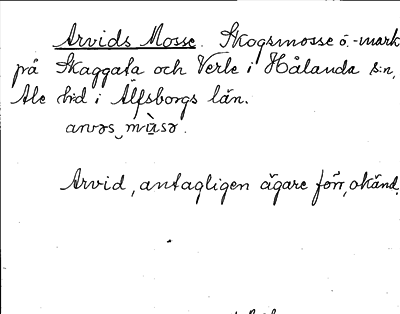 Arvids Mosse. Skogsmosse o. -mark
på Skaggata och Verle i Hålanda s:n,
Ale hd i Älfsborgs län.
arvəs mùsə.
Arvid, antagligen ägare förr, okänd.